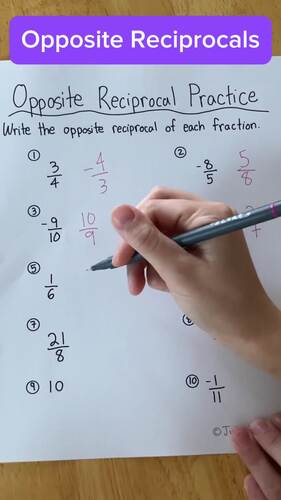 Opposite Reciprocals
Opposite Reciprocal Practice
Write the opposite reciprocal of each fraction.
① 3/4 -4/3
② -8/5 5/8
③ -9/10 10/9
⑤ 1/6
⑦ 21/8
⑨ 10
⑩ -1/11